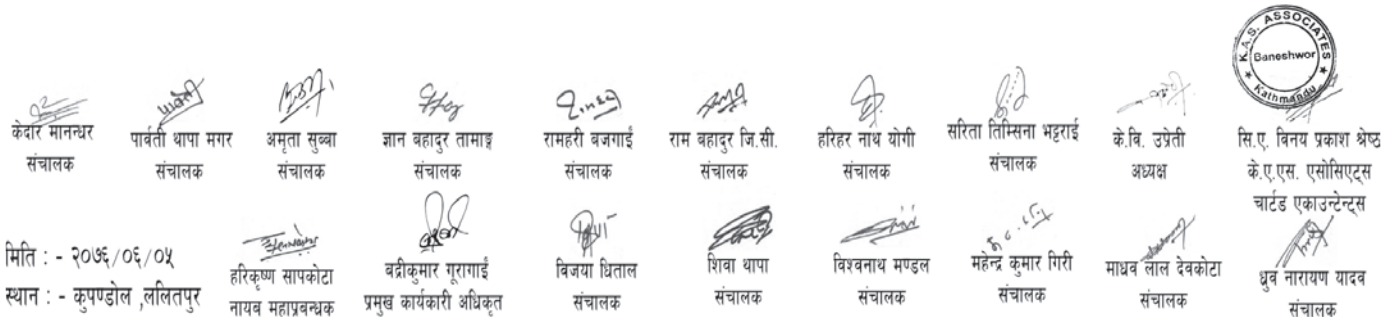 K.A.S. ASSOCIATES
Baneshwor
Kathmandu
केदार मानन्धर
संचालक
पार्वती थापा मगर
संचालक
अमृता सुब्बा
संचालक
ज्ञान बहादुर तामाङ्ग
संचालक
रामहरी बजगाईं
संचालक
राम बहादुर जि.सी.
संचालक
हरिहर नाथ योगी
संचालक
सरिता तिम्सिना भट्टराई
संचालक
के.वि. उप्रेती
अध्यक्ष
सि.ए. विनय प्रकाश श्रेष्ठ
के.ए.एस. एसोसिएट्स
चार्टड एकाउन्टेन्ट्स
मिति : - २०७६/०६/०५
स्थान : - कुपण्डोल ,ललितपुर
हरिकृष्ण सापकोटा
नायव महाप्रबन्धक
बद्रीकुमार गूरागाईं
प्रमुख कार्यकारी अधिकृत
विजया धिताल
संचालक
शिवा थापा
संचालक
विश्वनाथ मण्डल
संचालक
महेन्द्र कुमार गिरी
संचालक
माधव लाल देवकोटा
संचालक
ध्रुव नारायण यादव
संचालक